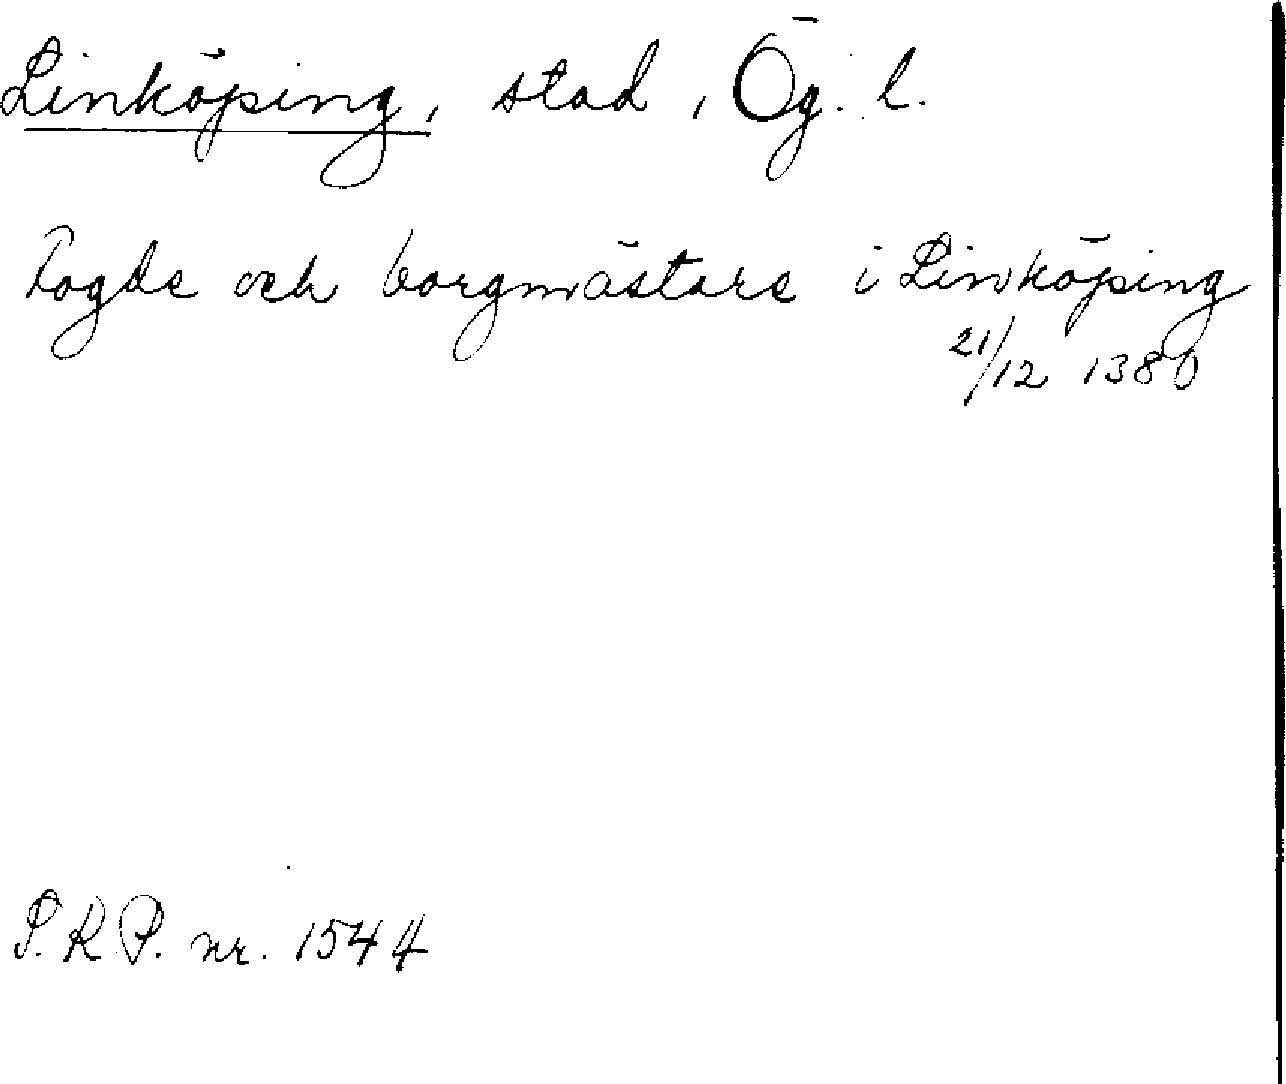 Linköping, stad, Ög. l.
Fogde och borgmästare i Linköping
21/12 1380
S.R.P. nr. 1544